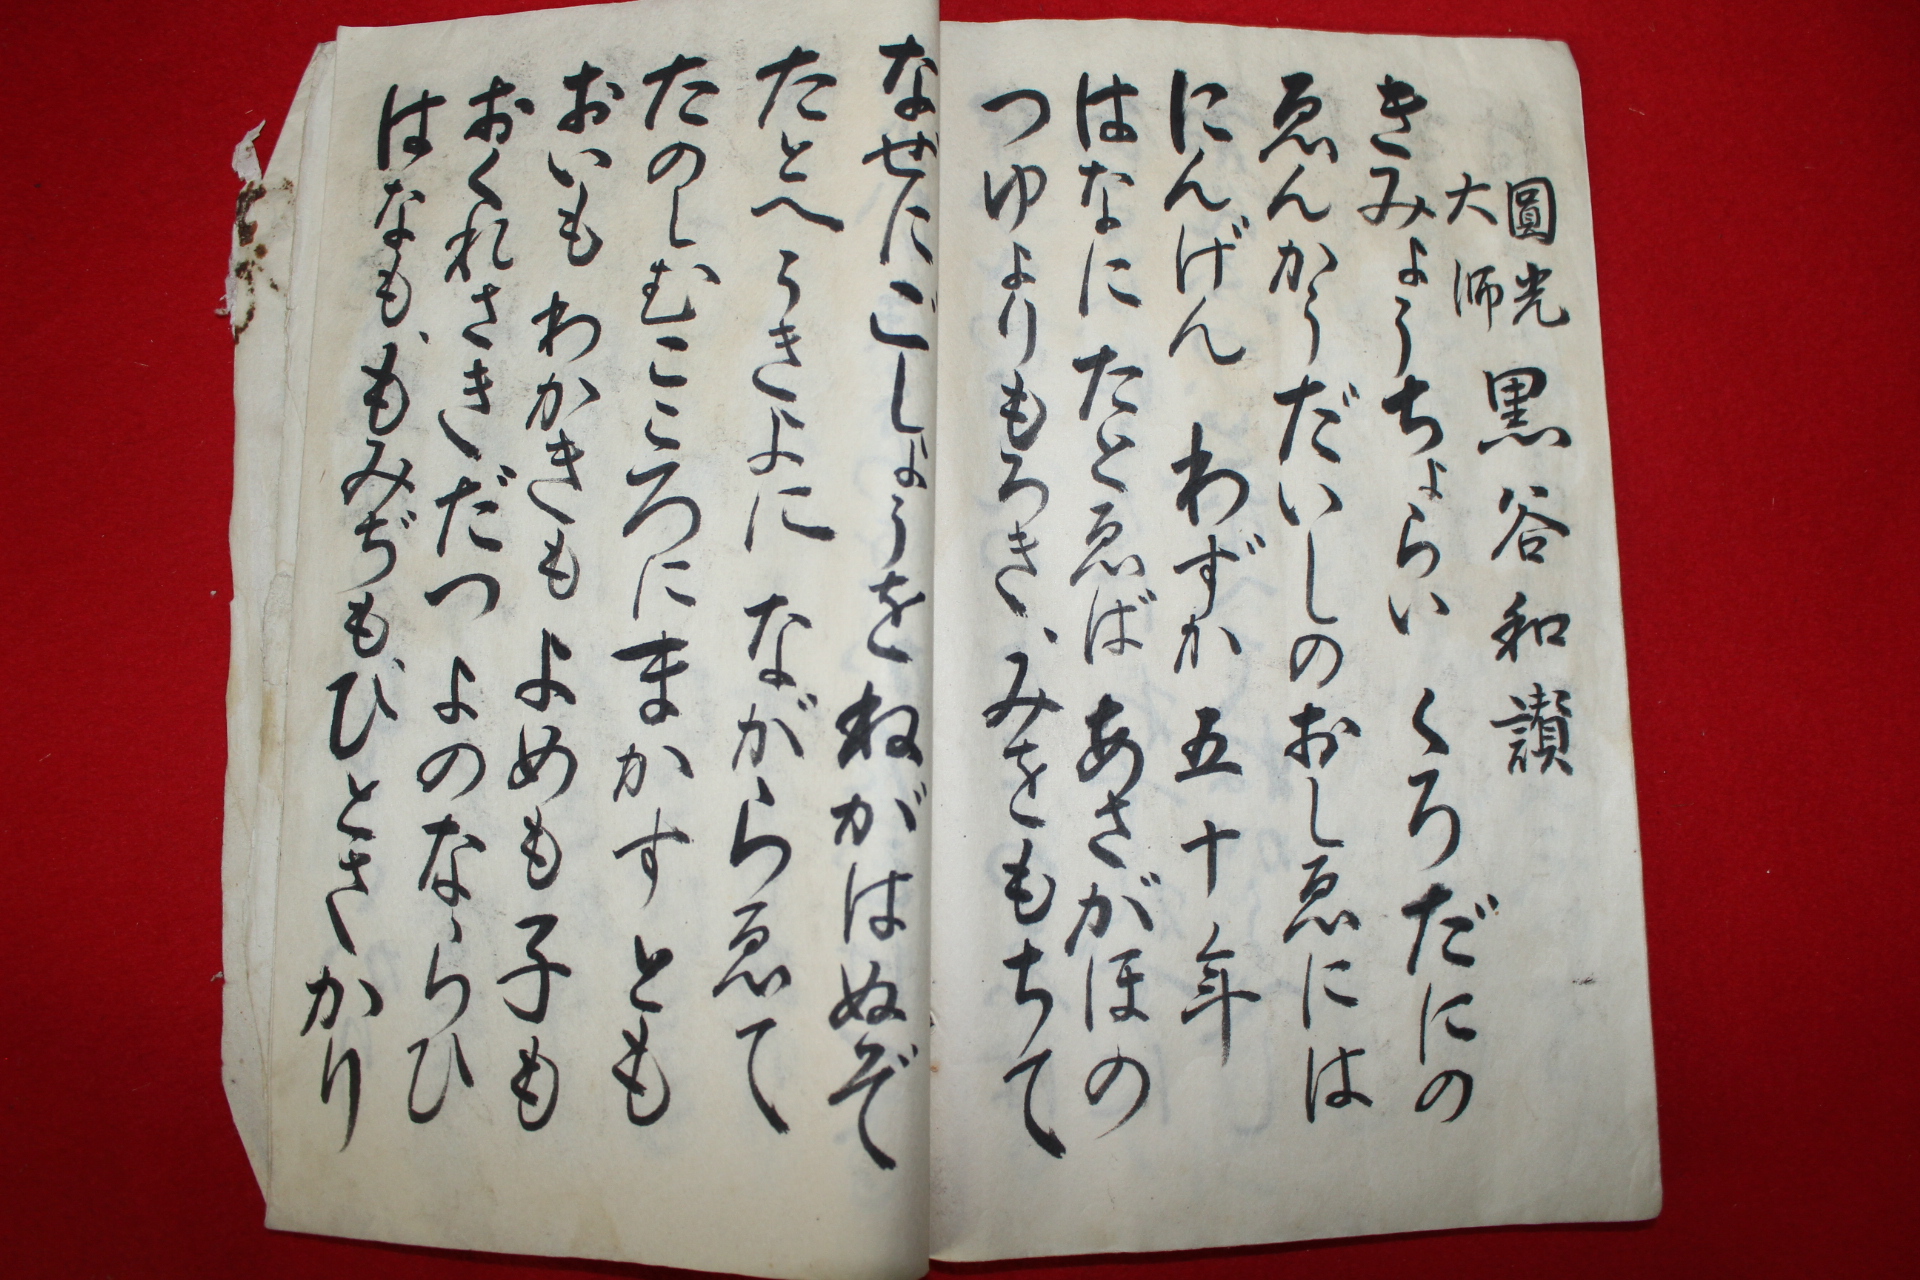 圓光
大師
黒谷和讃
きみょうちょらい くろだにの
ゑんかうだいしのおしゑには
にんげん わずか 五十年
はなに たとゑば あさがほの
つゆよりもろき、みをもちて
なぜにごしょうをねがはぬぞ
たとへうきよに ながらゑて
たのしむこころにまかすとも
おいも わかきも よめも子も
おくれさきだつ よのならひ
はなも、もみぢも、ひとさかり